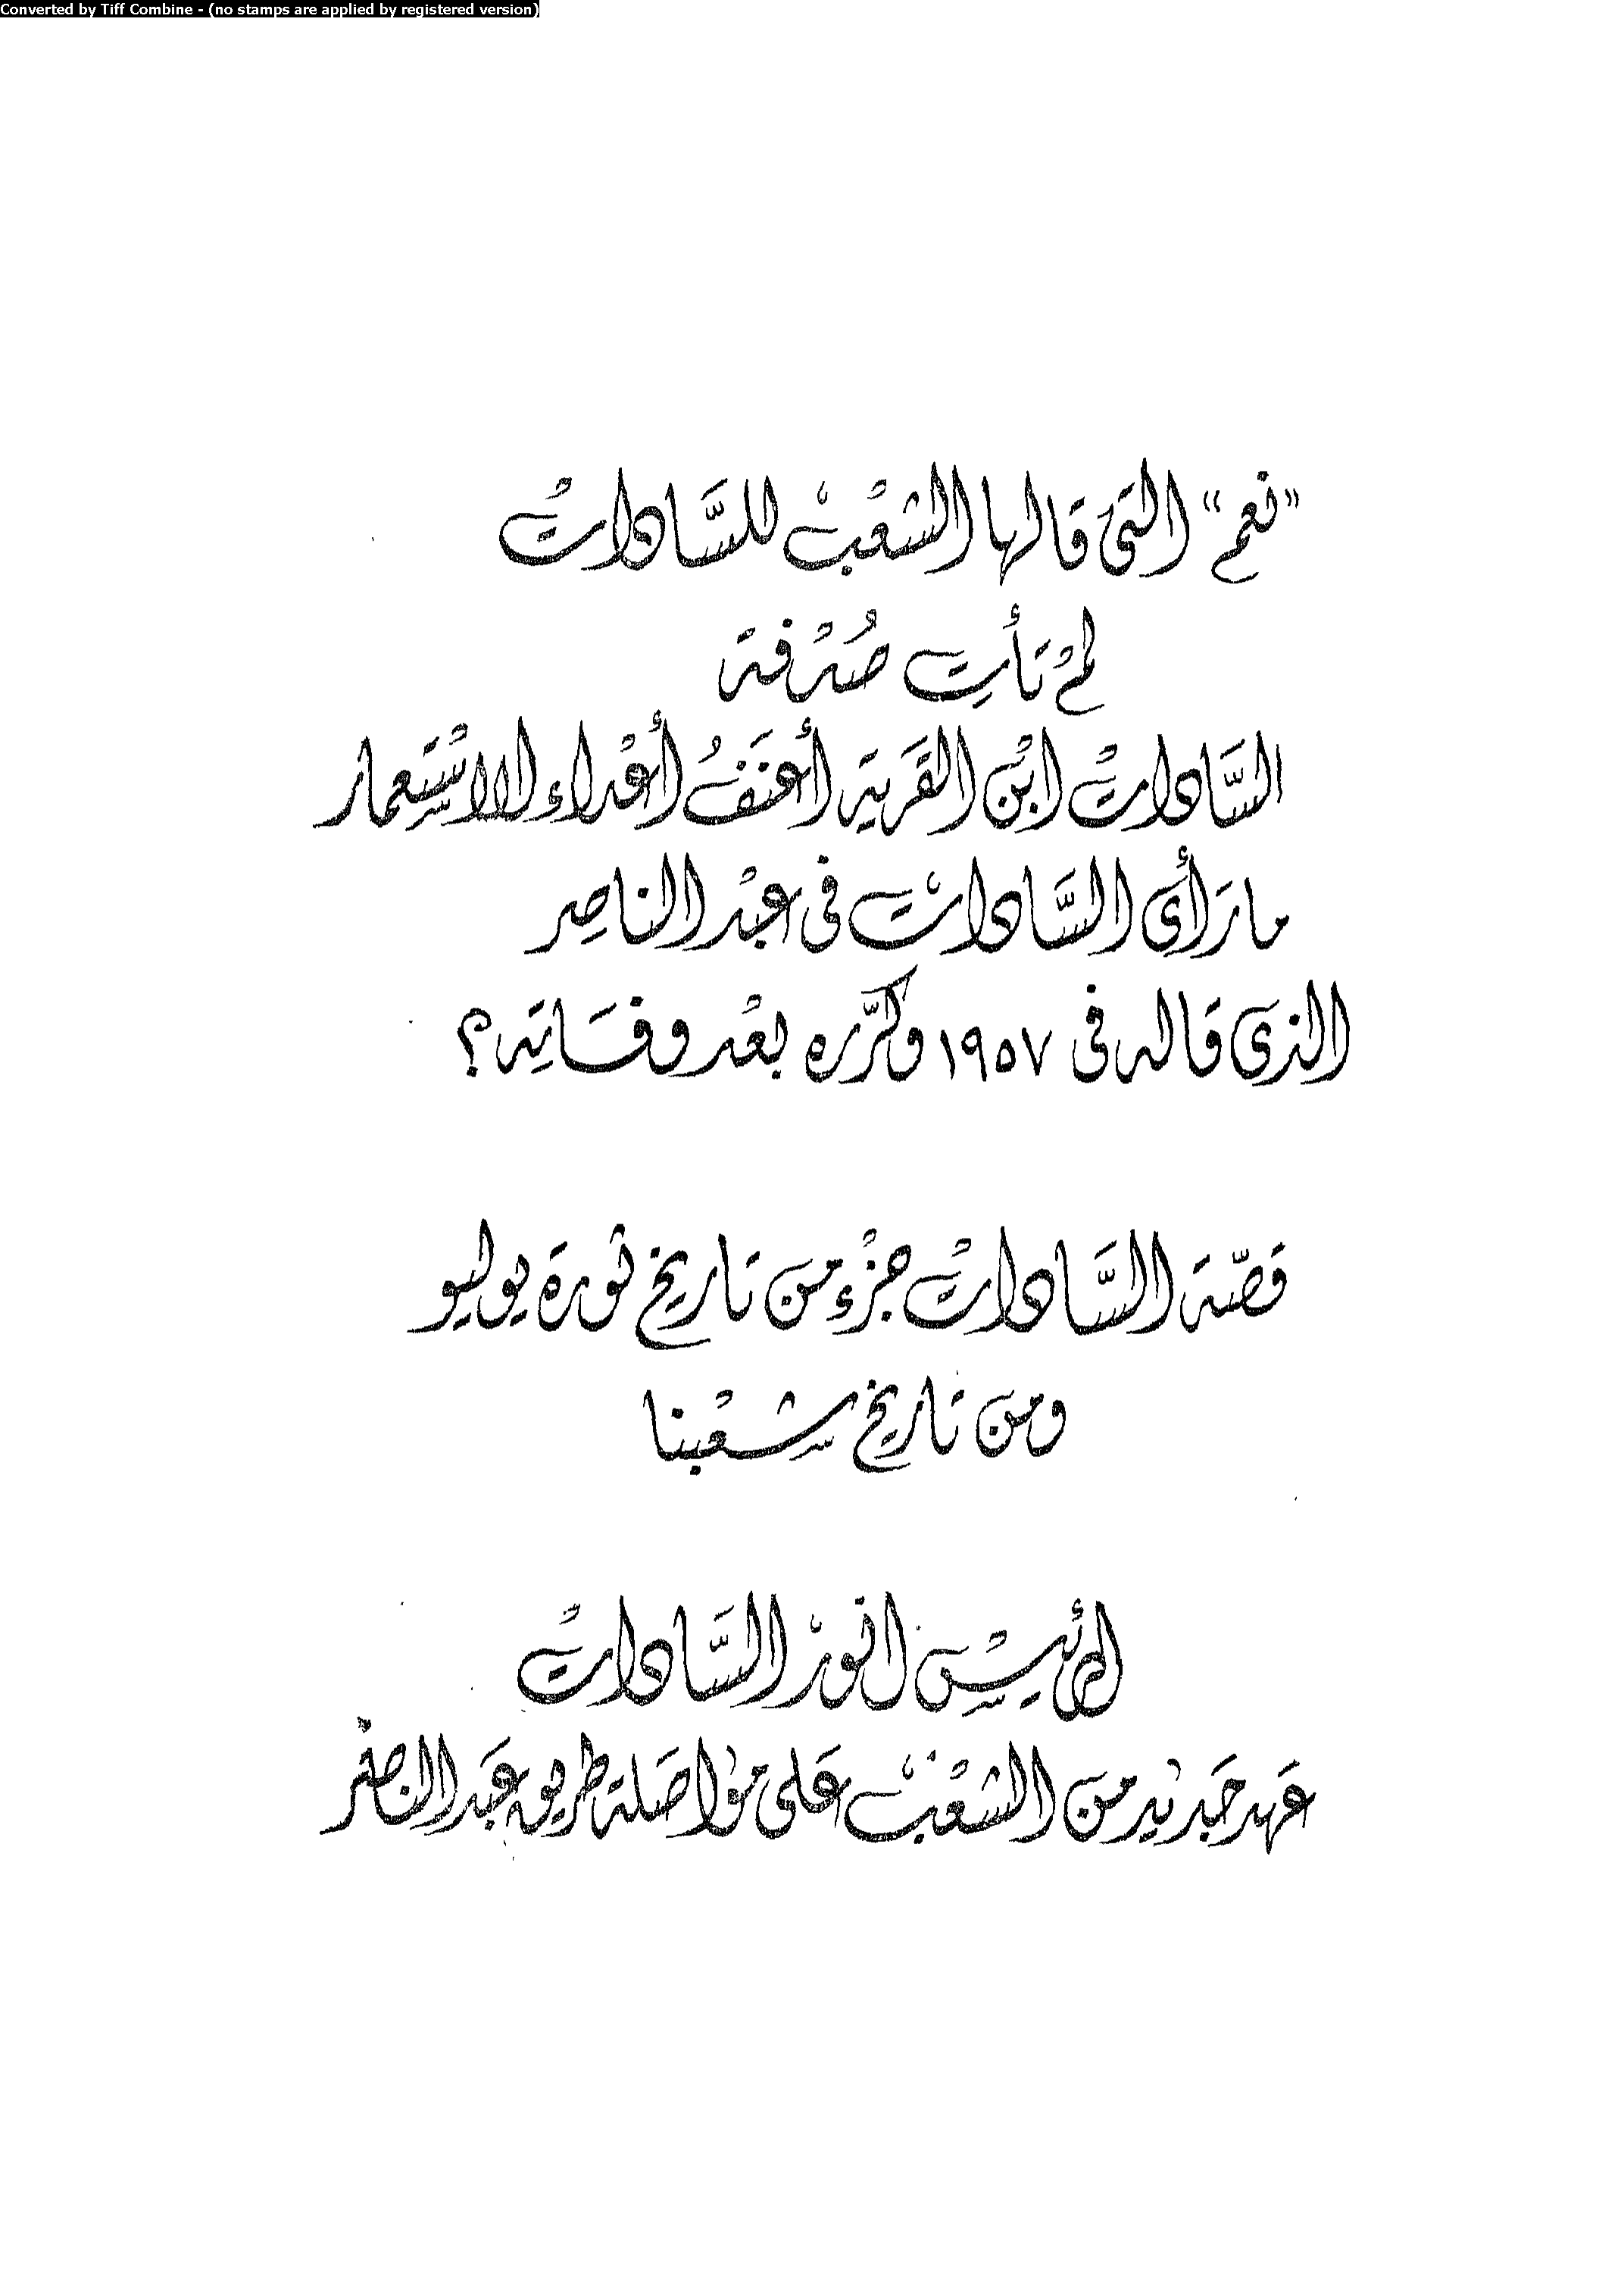 Converted by Tiff Combine - (no stamps are applied by registered version)
"نعم" التى قالها الشعْبْ للسَّادات
لمْ تأتِ صُدْفة
السَّاداتْ ابْن القَرية أعنَفُ أعْداء للاسْتِعمار
ما رَأى السَّاداتْ فى عبْد الناصِر
الذى قاله فى ١٩٥٧ وكرَّره بعْد وفَاتِه؟
قصّة السَّاداتْ جزْء من تاريخ ثورة يوليو
ومن تاريخ شعْبنا
الرئيسْ انورْ السَّاداتْ
عَهد جَديد من الشعْبْ عَلى مواصَلة طريق عَبد الناصر